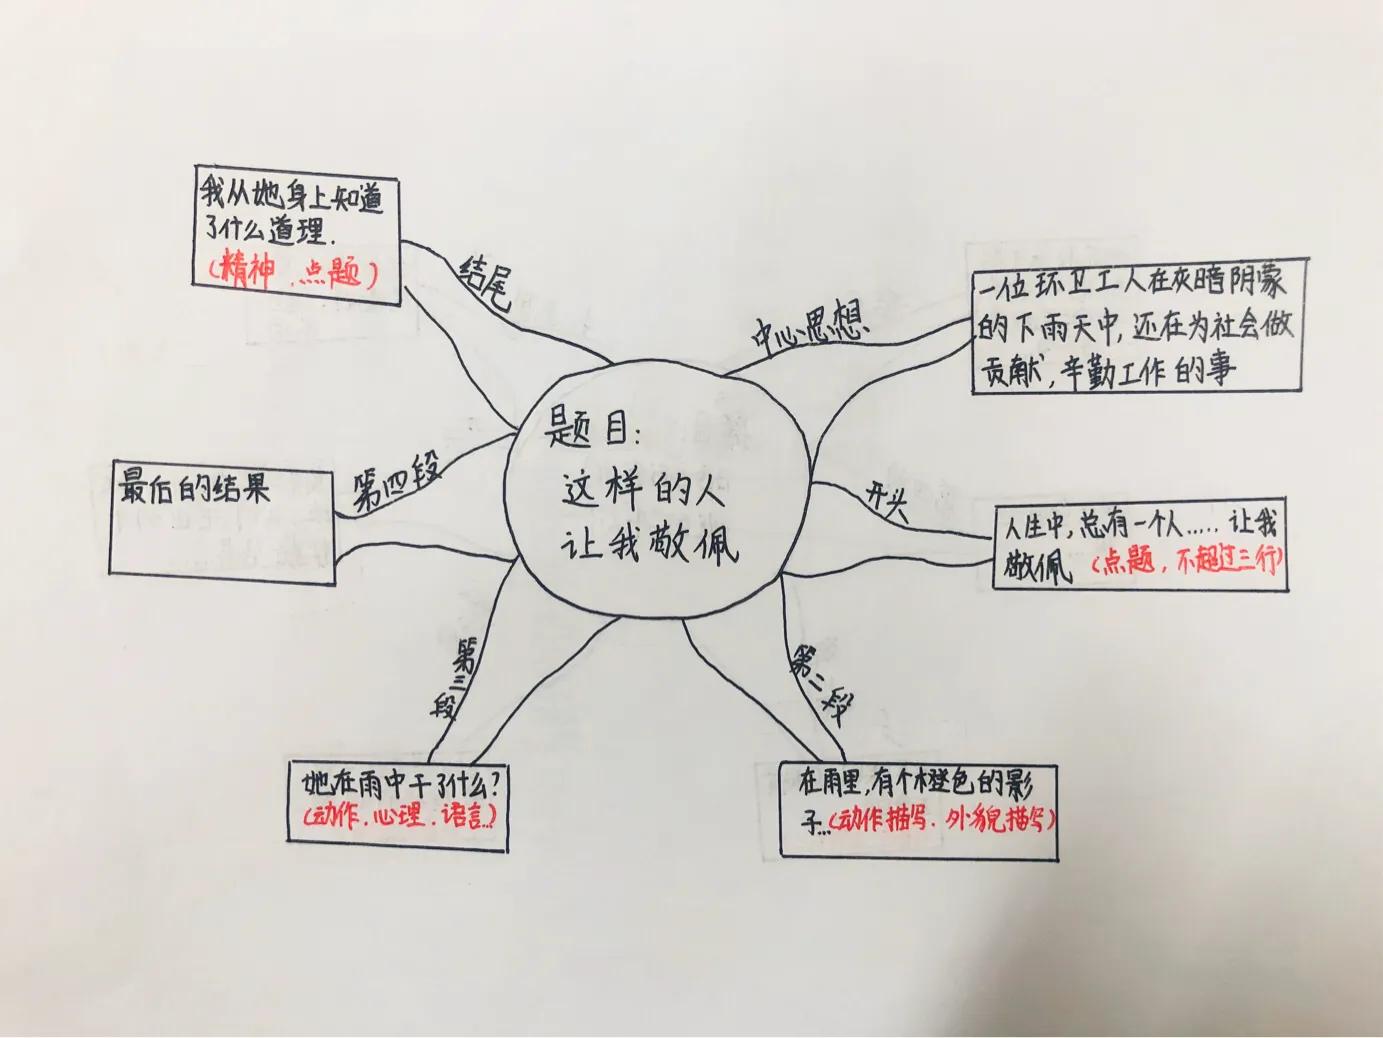 题目：
这样的人
让我敬佩
中心思想
一位环卫工人在灰暗阴蒙
的下雨天中，还在为社会做
贡献，辛勤工作的事
开头
人生中，总有一个人……让我
敬佩（点题，不超过三行）
第二段
在雨里，有个橙色的影
子…（动作描写、外貌描写）
第三段
她在雨中干了什么？
（动作、心理、语言…）
第四段
最后的结果
结尾
我从她身上知道
了什么道理.
（精神、点题）